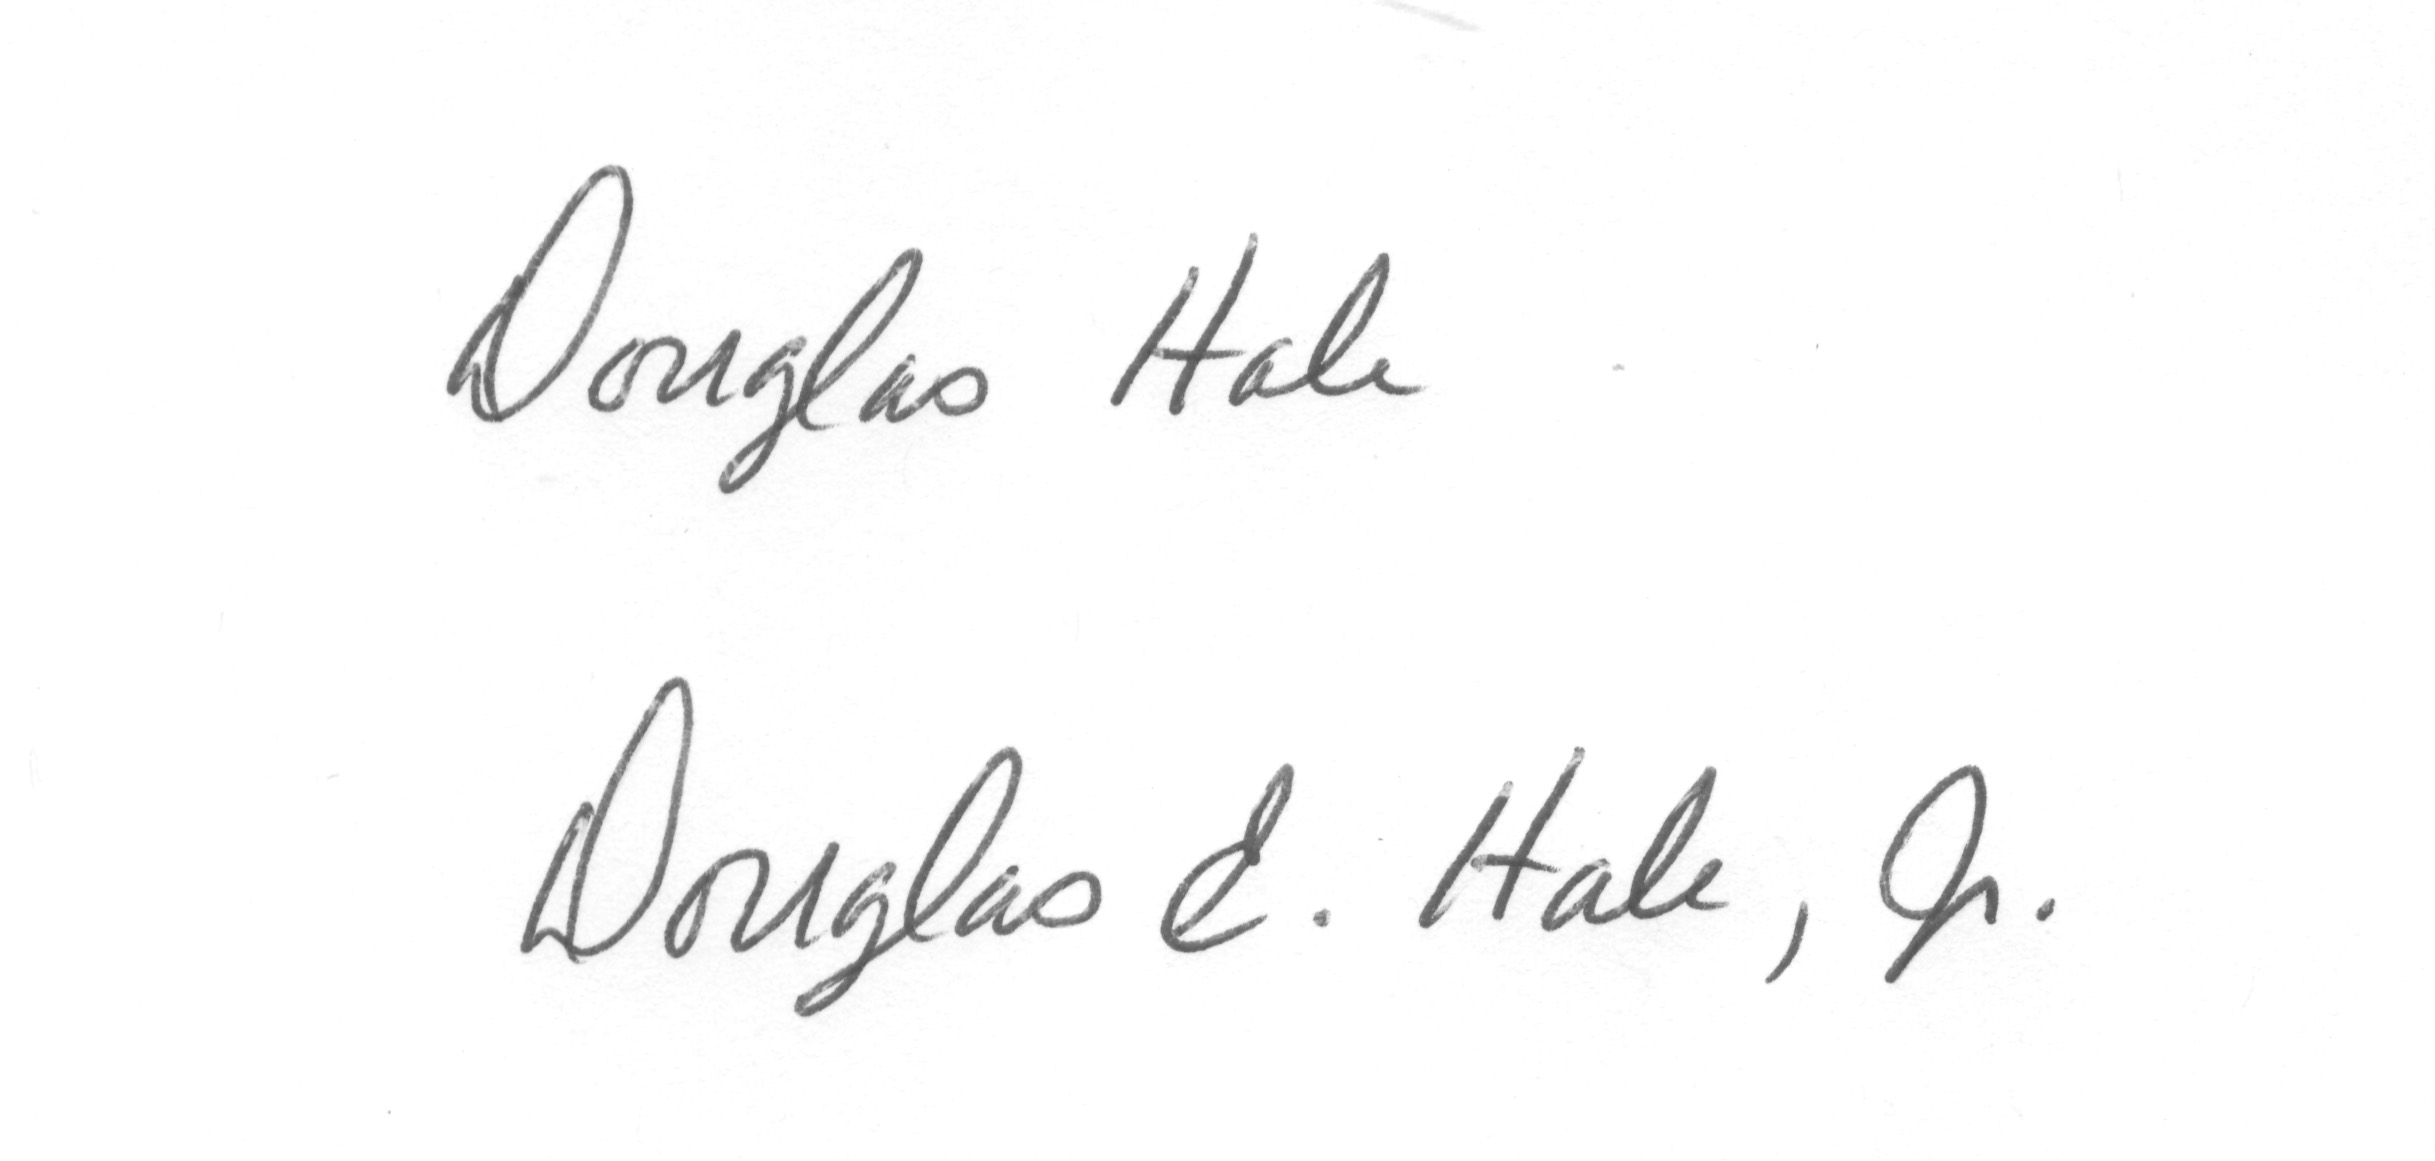 Douglas Hale
Douglas E. Hale, Jr.